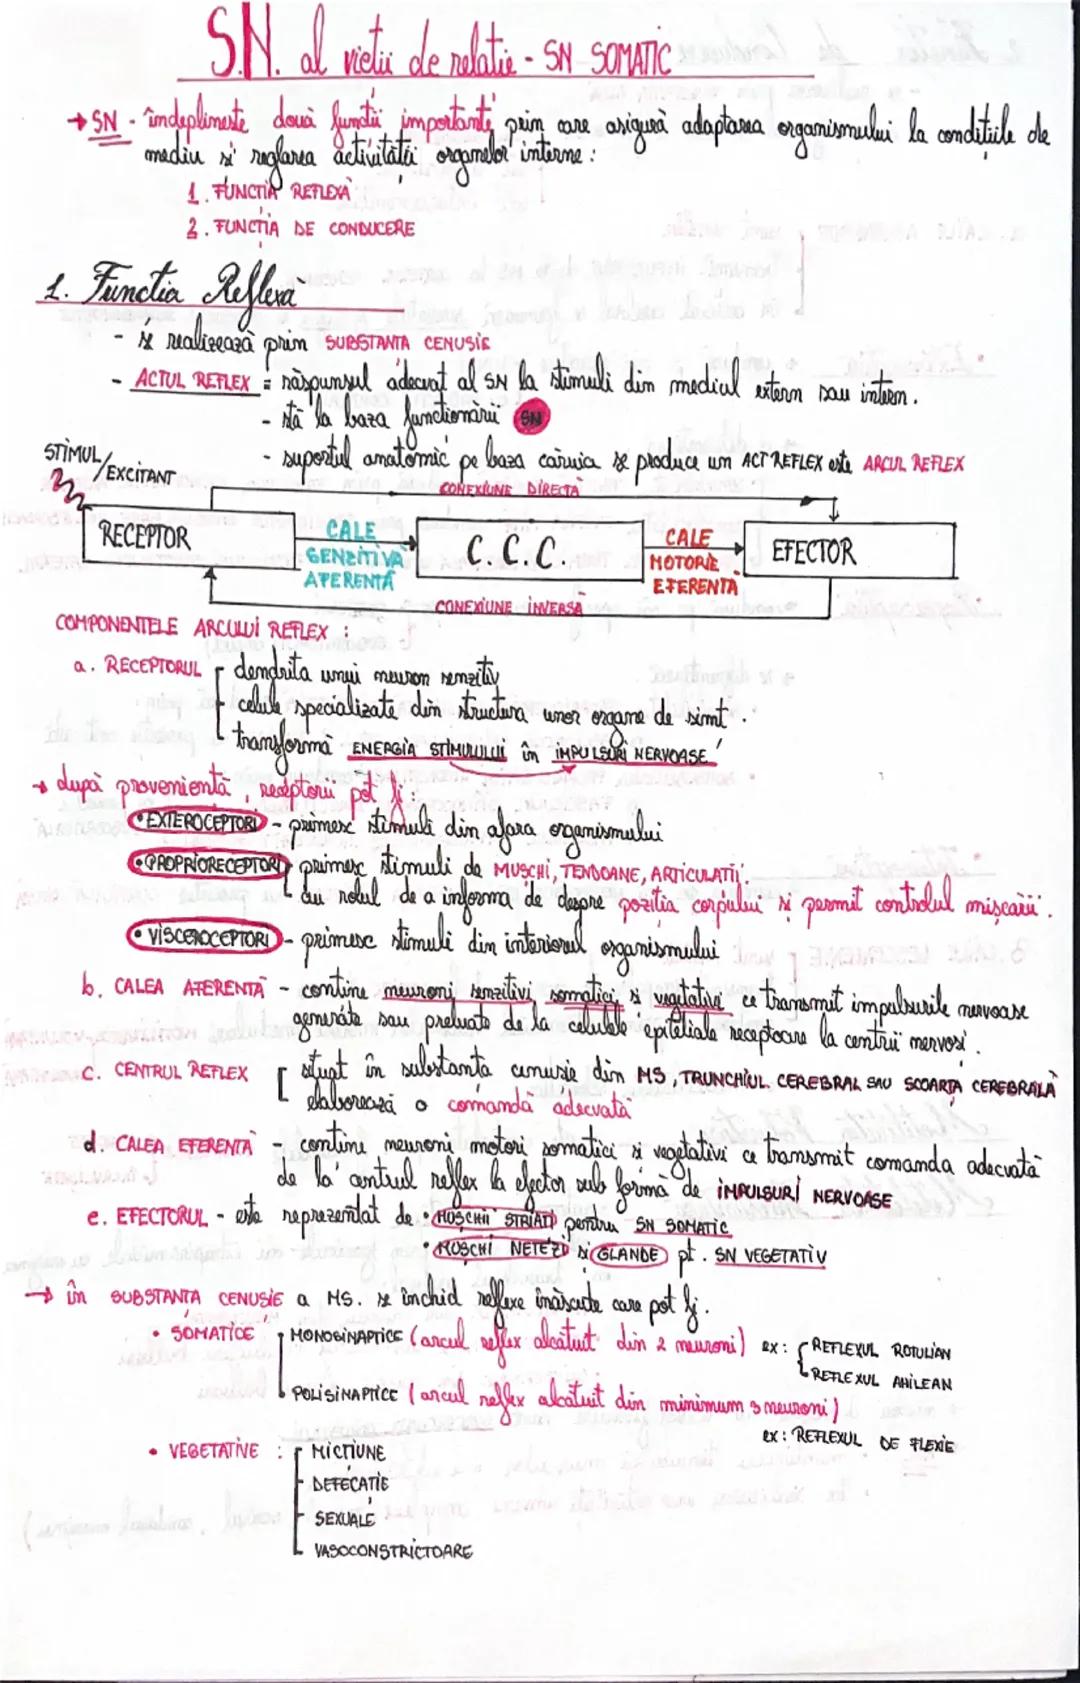 S.N. al vietii de relatie - SN SOMATIC
→ SN - îndeplineste două functii importante prin care asigură adaptarea organismului la conditiile de
mediu si reglarea activitătii organelor interne :
1. FUNCTIA REFLEXĂ
2. FUNCTIA DE CONDUCERE
1. Functia Reflexă
- se realizează prin SUBSTANTA CENUSIE
- ACTUL REFLEX = răspunsul adecvat al SN la stimuli din mediul extern sau intern.
- stă la baza functionării SN
- suportul anatomic pe baza căruia se produce un ACT REFLEX este ARCUL REFLEX
STIMUL/EXCITANT
CONEXIUNE DIRECTĂ
RECEPTOR
CALE SENZITIVĂ AFERENTĂ
C.C.C.
CALE MOTORIE EFERENTĂ
EFECTOR
CONEXIUNE INVERSĂ
COMPONENTELE ARCULUI REFLEX :
a. RECEPTORUL
dendrita unui neuron senzitiv
celule specializate din structura unor organe de simt.
transformă ENERGIA STIMULULUI în IMPULSURI NERVOASE
→ după provenientă, receptorii pot fi :
• EXTEROCEPTORI - primesc stimuli din afara organismului
• PROPRIORECEPTORI
primesc stimuli de MUSCHI, TENDOANE, ARTICULATII.
au rolul de a informa de despre pozitia corpului si permit controlul mișcării.
• VISCEROCEPTORI - primesc stimuli din interiorul organismului
b. CALEA AFERENTĂ - contine neuroni senzitivi somatici si vegetativi ce transmit impulsurile nervoase
generate sau preluate de la celulele epiteliale receptoare la centrii nervosi.
c. CENTRUL REFLEX
situat în substanta cenusie din MS, TRUNCHIUL CEREBRAL SAU SCOARTA CEREBRALĂ
elaborează o comandă adecvată
d. CALEA EFERENTĂ - contine neuroni motori somatici si vegetativi ce transmit comanda adecvată
de la centrul reflex la efector sub formă de IMPULSURI NERVOASE
e. EFECTORUL - este reprezentat de • MUSCHII STRIATI pentru SN SOMATIC
• MUSCHI NETEZI si GLANDE pt. SN VEGETATIV
→ în SUBSTANTA CENUSIE a MS. se închid reflexe înăscute care pot fi.
• SOMATICE
MONOSINAPTICE (arcul reflex alcătuit din 2 neuroni) ex: REFLEXUL ROTULIAN
REFLEXUL AHILEAN
POLISINAPTICE (arcul reflex alcătuit din minimum 3 neuroni)
ex: REFLEXUL DE FLEXIE
• VEGETATIVE :
MICTIUNE
DEFECATIE
SEXUALE
VASOCONSTRICTOARE